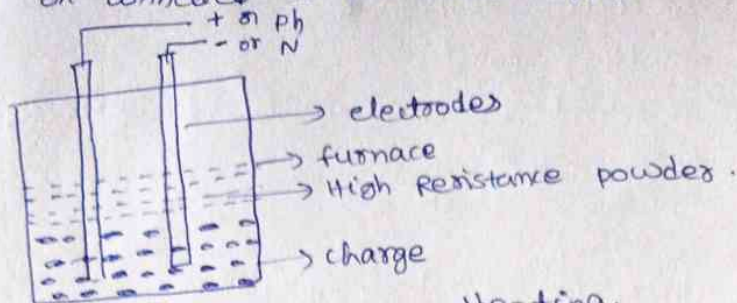 + or Ph
- or N
electrodes
furnace
High Resistance powder.
charge
Heating